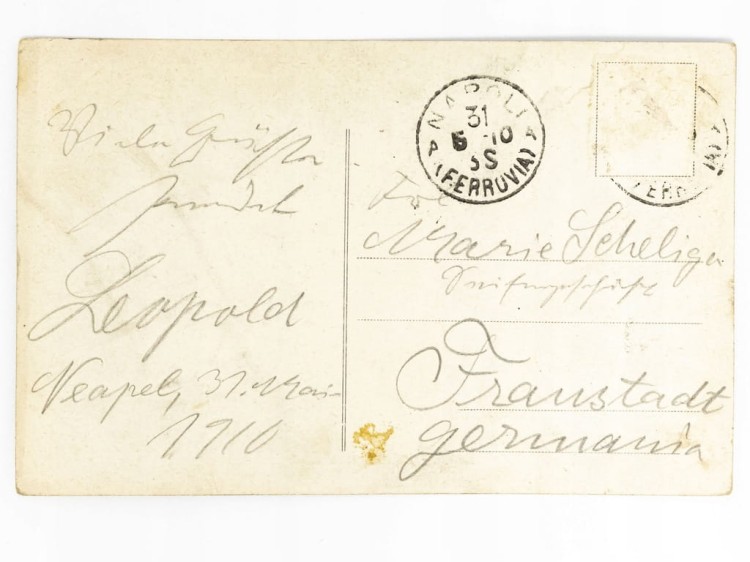 Viele Grüße
sendet
Leopold
Neapel, 31. Mai
1910
NAPOLI
31
5 -10
(FERROVIA)
Frl
Marie Scheliga
Seifengeschäft
Fraustadt
germania